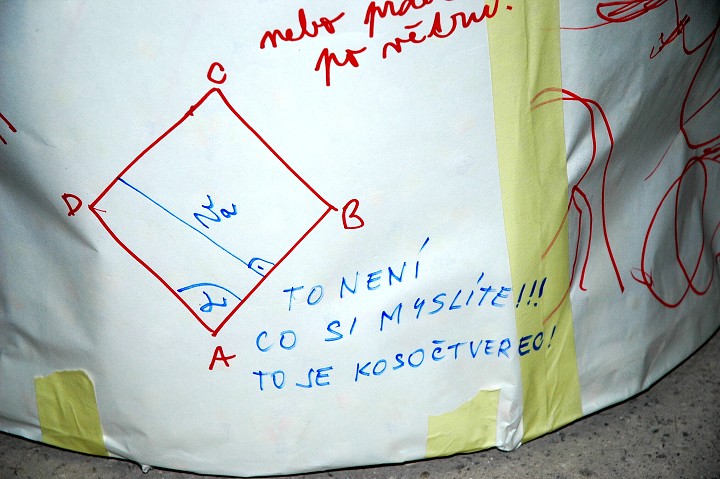 nebo
po větru.
C
D
B
α
A
TO NENÍ
CO SI MYSLÍTE!!!
TO JE KOSOČTVEREC!